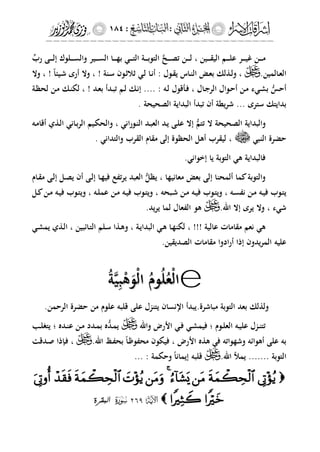 إشراقات الإسراء : الجزء الثاني : ١٨٤
مــن غيــر علــم اليقــين ، لــن تصــحّ التوبــة التــي بهــا الســير والســلوك إلــى ربّ
العالمين ، ولذلك بعض الناس يقول : أنا لي ثلاثون سنة ! ، ولا أرى شيئاً ! ، ولا
أحــسُّ بشيء من أحوال الرجال ، فأقول له : .... إنك لم تبدأ بعد ! ، لكنك من لحظة
بدايتك سترى ... شريطة أن تبدأ البداية الصحيحة .
والبداية الصحيحة لا تتمُّ إلا على يد العبد النوراني ، والحكيم الرباني الذي أقامه
حضرة النبي ، ليقرب أهل الحظوة إلى مقام القرب والتداني .
فالبداية هي التوبة يا إخواني.
والتوبة كما ألمحنا إلى بعض معانيها ، يظلُّ العبد يرتفع فيها إلى أن يصل إلى مقام
يتوب فيه من نفسه ، ويتوب فيه من شبحه ، ويتوب فيه من عمله ، ويتوب فيه من كل
شيء ، ولا يرى إلا الله. هو الفعال لما يريد.
هي نعم مقامات عالية !!! ، لكنها هي البداية ، وهذا سلم التائبين ، الذي يمشي
عليه المريدون إذا أرادوا مقامات الصديقين.
العُلُومُ الْوَهْبِيَّةُ
ولذلك بعد التوبة مباشرة. يبدأ الإنسان يتنزل على قلبه علوم من حضرة الرحمن.
تتنزل عليه العلوم ؛ فيمشي في الأرض والله يمدُّه بمدد من عنده ؛ يتغلب
به على أهوائه وشهواته في هذه الأرض ، فيكون محفوظاً بحفظ الله. ، فإذا صدقت
التوبة ....... يملأ الله. قلبه إيماناً وحكمة : ...
﴿ يُؤْتِي الْحِكْمَةَ مَن يَشَاءُ ۚ وَمَن يُؤْتَ الْحِكْمَةَ فَقَدْ أُوتِيَ
خَيْرًا كَثِيرًا ﴾ الآية ٢٦٩ سورة البقرة